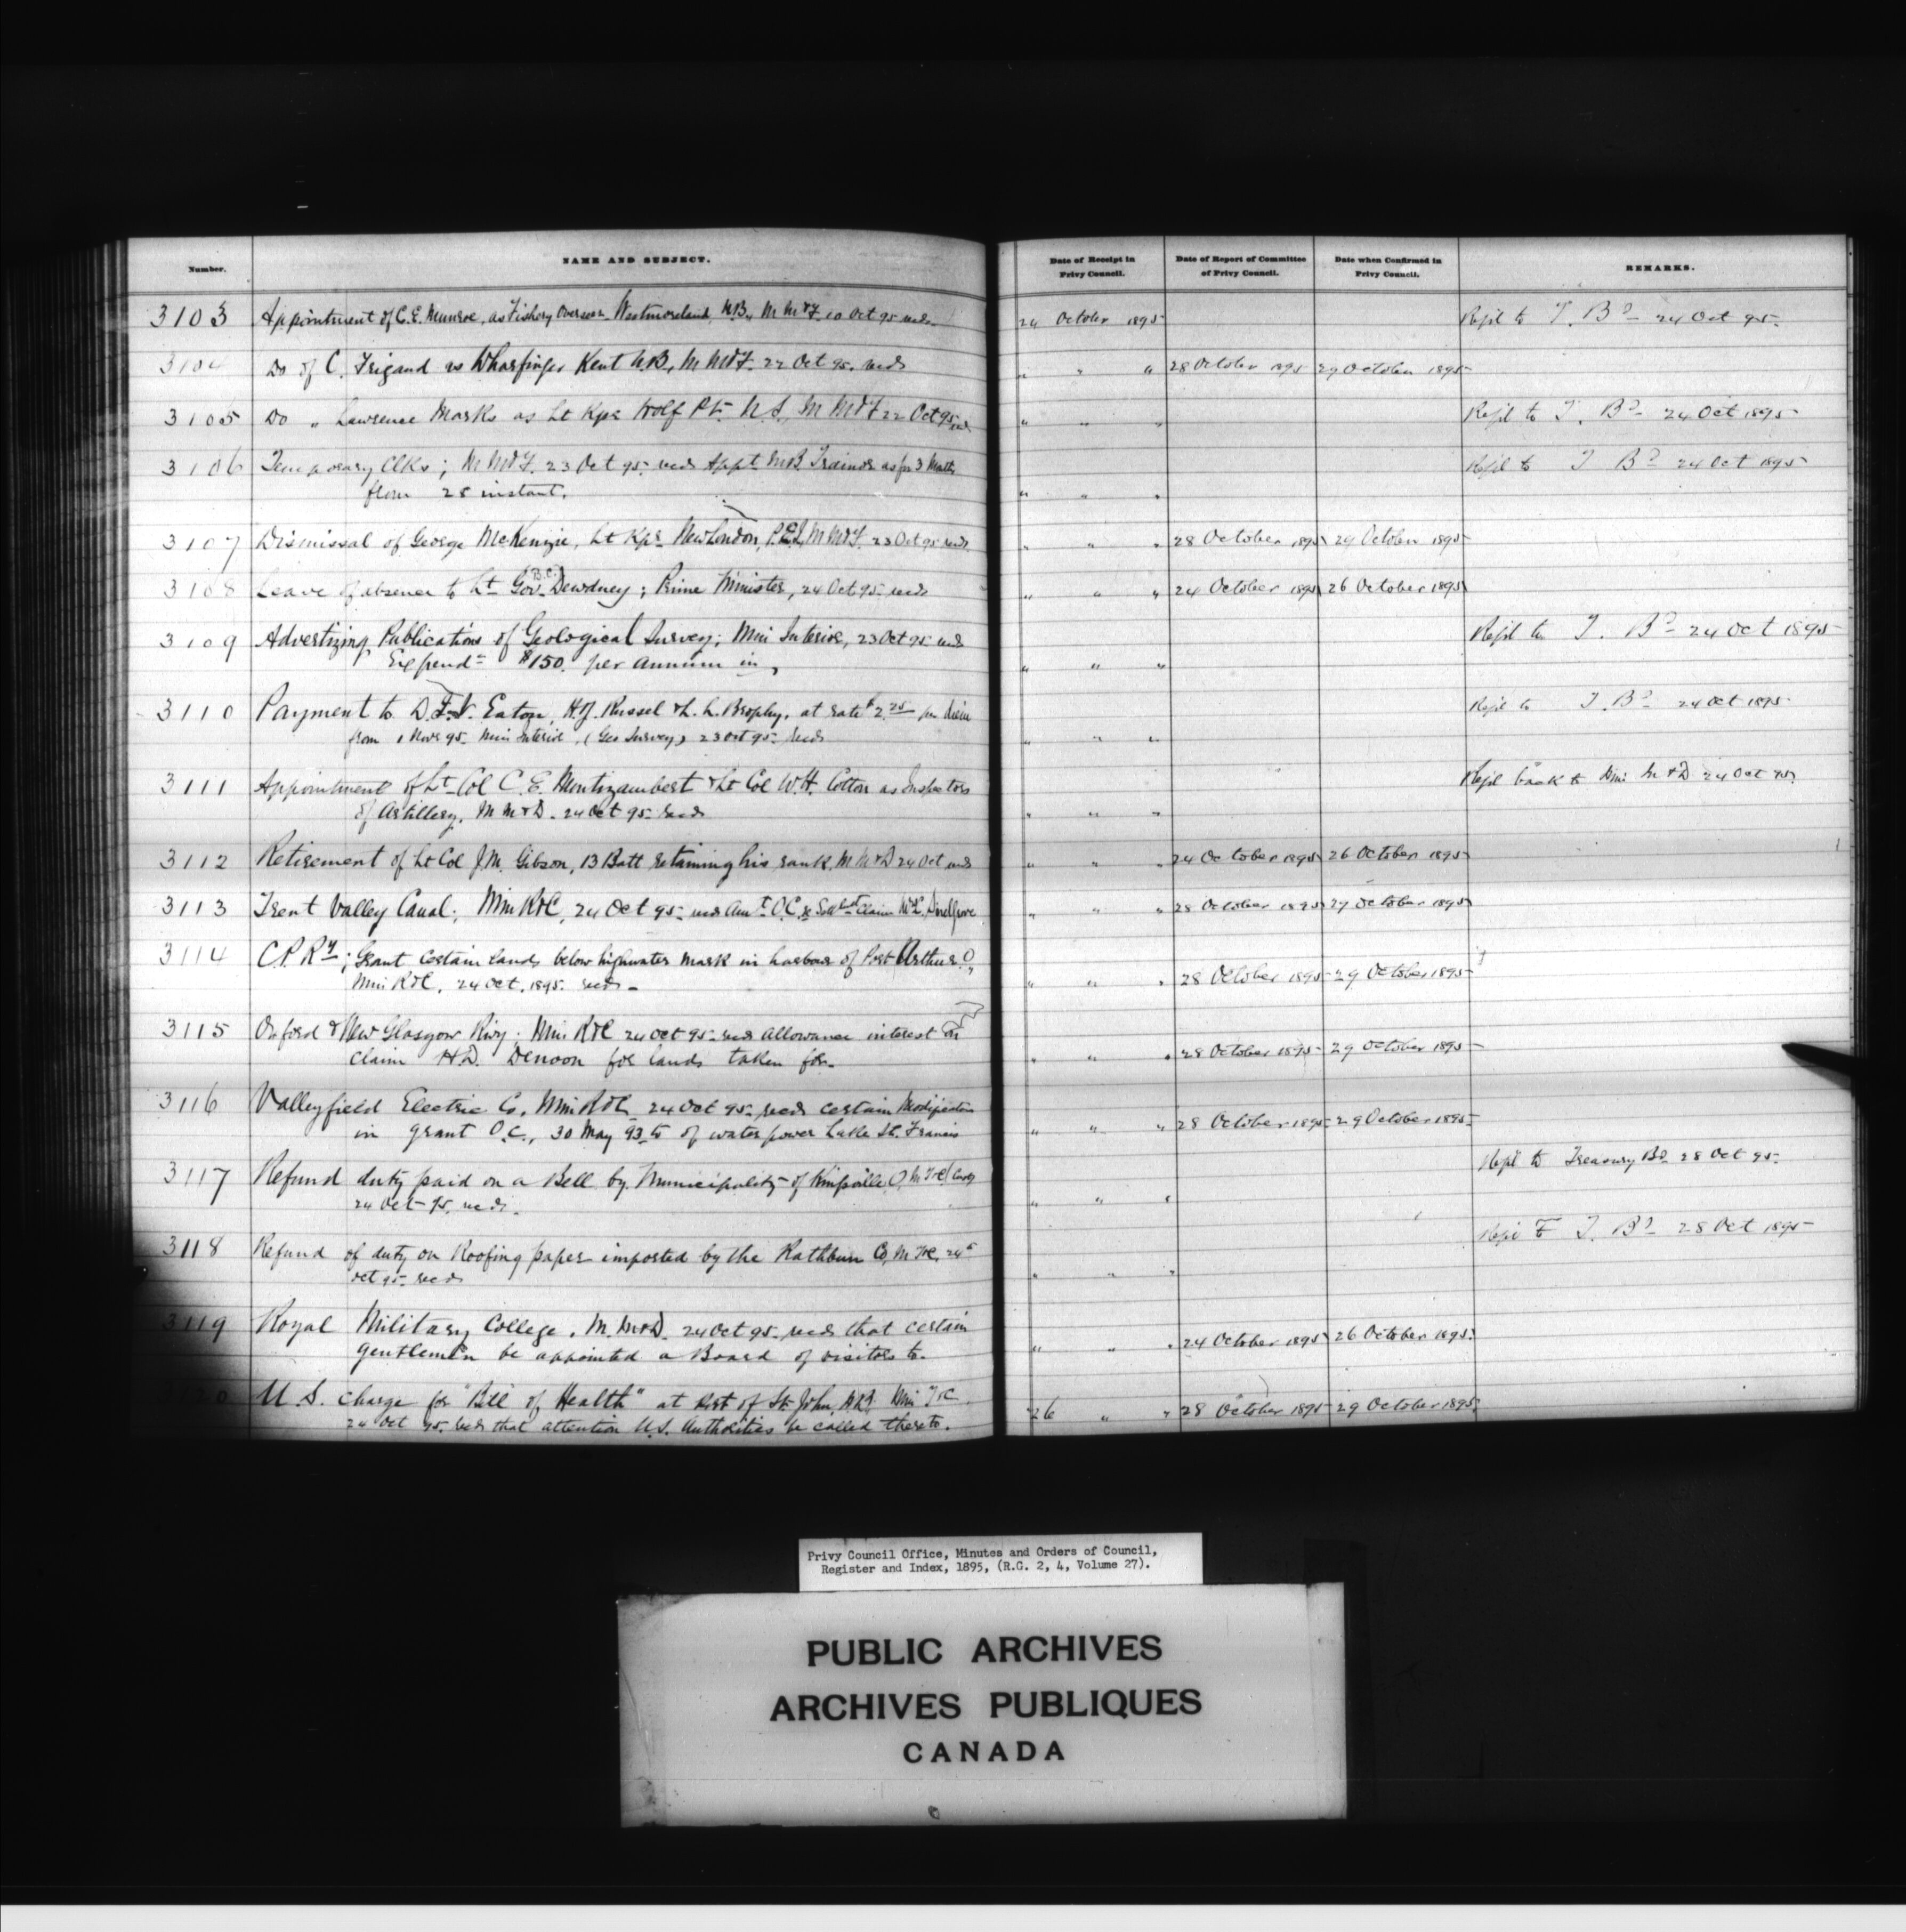 Number.
NAME AND SUBJECT.
Date of Receipt in
Privy Council.
Date of Report of Committee
of Privy Council.
Date when Confirmed in
Privy Council.
REMARKS.
3103 Appointment of C. E. Munroe, as Fishery Overseer Westmoreland, N.B., M M & F. 10 Oct 95 recds 24 October 1895 Refd to T. Bd 24 Oct 95.
3104 Do of C. as Wharfinger Kent N.B, M M & F. 22 Oct 95. recds " " " 28 October 1895 29 October 1895
3105 Do " Lawrence Marks as Lt Kpr Wolf Pt. N.S, M M & F 22 Oct 95 recds " " " Refd to T. Bd 24 Oct 1895
3106 Temporary Clks; M M & F. 23 Oct 95. recds Appt as for 3 Months Refd to T Bd 24 Oct 1895
from 28 instant. " " "
3107 Dismissal of George McKenzie, Lt Kpr New London, P.E.I, M M & F. 23 Oct 95 recds " " " 28 October 1895 29 October 1895
3108 Leave of absence to Lt Gov (B.C.) Dewdney; Prime Minister, 24 Oct 95 recds " " " 24 October 1895 26 October 1895
3109 Advertizing Publications of Geological Survey; Min Interior, 23 Oct 95 recds Refd to T. Bd 24 Oct 1895
Expend= $150. per annum in, " " "
3110 Payment to D. I. V. Eaton, H. Y. Russel & L. L. Brophy, at rate $2.25 per diem Refd to T. Bd 24 Oct 1895
from 1 Novr 95 Min Interior, (Geo Survey) 23 Oct 95 recds " " "
3111 Appointment of Lt Col C. E. Montizambert & Lt Col W. H. Cotton as Inspectors Refd back to Min M & D 24 Oct 95.
of Artillery, M M & D. 24 Oct 95 recds " " "
3112 Retirement of Lt Col J. M. Gibson, 13 Batt retaining his rank, M M & D 24 Oct recds " " " 24 October 1895 26 October 1895
3113 Trent Valley Canal; Min R & C, 24 Oct 95 recds Amt O.C. Claim " " " 28 October 1895 29 October 1895
3114 C. P. Ry; Grant certain lands below highwater mark in harbour of Port Arthur O,
Min R & C, 24 Oct. 1895. recds " " " 28 October 1895 29 October 1895
3115 Oxford & New Glasgow Rwy; Min R & C 24 Oct 95 recds allowance interest on
claim H. D. Denoon for lands taken for. " " " 28 October 1895 29 October 1895
3116 Valleyfield Electric Co. Min R & C 24 Oct 95 recds certain Modification
in grant O.C., 30 May 93 to of water power Lake St. Francis " " " 28 October 1895 29 October 1895
3117 Refund duty paid on a Bell by Municipality of O, M T & C Refd to Treasury Bd 28 Oct 95.
24 Oct 95. recds. " " "
3118 Refund of duty on Roofing paper imported by the Rathbun Co, M T & C. 24 Refd to T. Bd 28 Oct 1895
Oct 95 recds " " "
3119 Royal Military College, M. M & D. 24 Oct 95 recds that certain
gentlemen be appointed a Board of visitors to. " " " 24 October 1895 26 October 1895.
3120 U. S. Charge for "Bill of Health" at Port of St. John, N.B. Min T & C 26 " " 28 October 1895 29 October 1895.
24 Oct 95. recds that attention U.S. Authorities be called thereto.
Privy Council Office, Minutes and Orders of Council,
Register and Index, 1895, (R.G. 2, 4, Volume 27).
PUBLIC ARCHIVES
ARCHIVES PUBLIQUES
CANADA